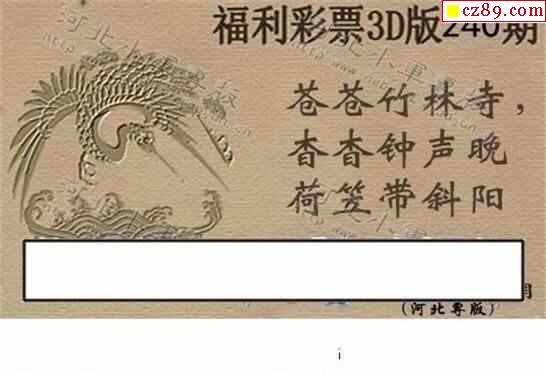 cz89.com
福利彩票3D版240期
苍苍竹林寺，
杳杳钟声晚
荷笠带斜阳
(河北粤版)
i